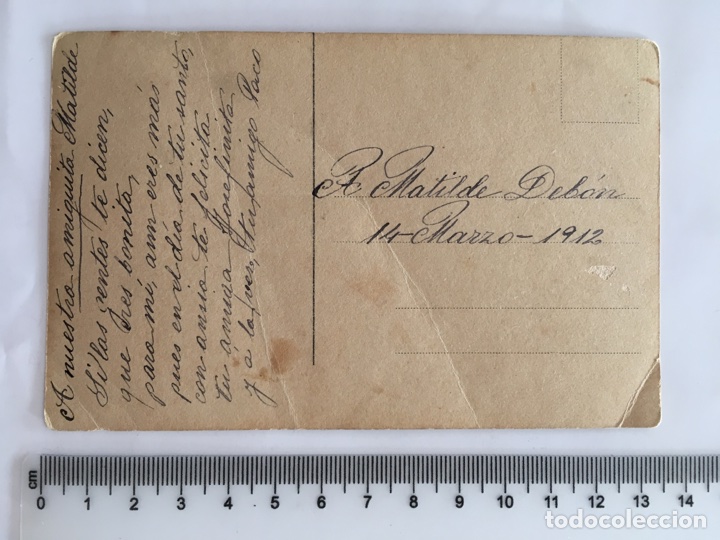 A nuestra amiguita Matilde
Si las gentes te dicen,
que eres bonita,
para mí, aun eres más
pues en el día de tu santo,
con ansia te felicita
tu amiga Josefinita
y a la vez, tu amigo Paco
A Matilde Debón
14-Marzo-1912
cm
0 1 2 3 4 5 6 7 8 9 10 11 12 13 14
todocoleccion
todocoleccion.net